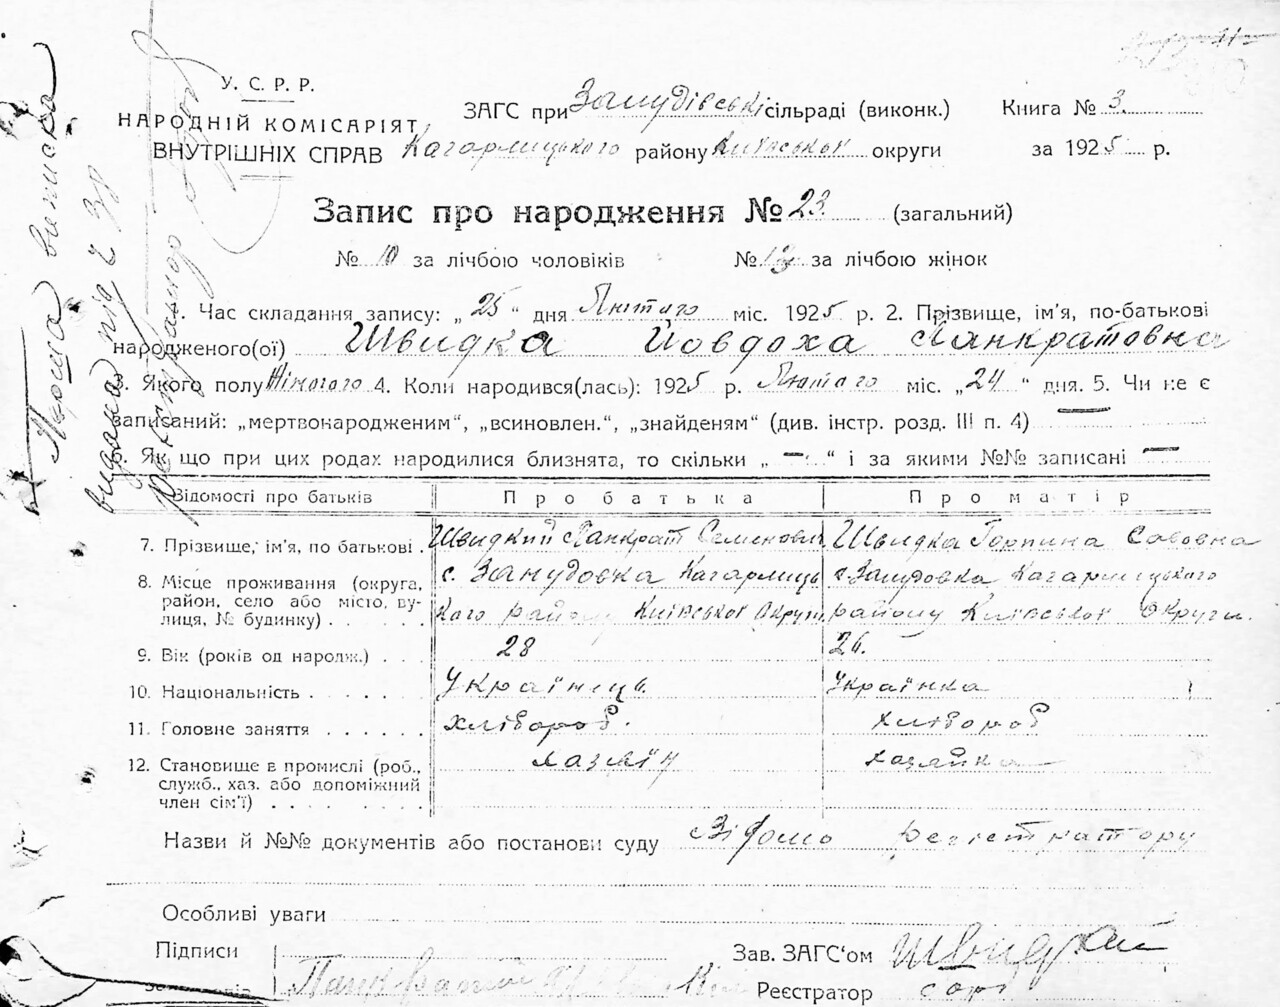 У. С. Р. Р.
НАРОДНІЙ КОМІСАРІЯТ
ВНУТРІШНІХ СПРАВ
ЗАГС при Занудівські сільраді (виконк.)
Кагарлицького району Київської округи
Книга № 3.
за 1925 р.
Запис про народження № 23 (загальний)
№ 10 за лічбою чоловіків № 13 за лічбою жінок
. Час складання запису: „ 25 “ дня Лютаго міс. 1925 р. 2. Прізвище, ім'я, по-батькові
народженого(ої) Швидка Йовдоха Панкратовна
. Якого полу Жіночого 4. Коли народився(лась): 1925 р. Лютаго міс. „ 24 “ дня. 5. Чи не є
записаний: „мертвонародженим“, „всиновлен.“, „знайденям“ (див. інстр. розд. III п. 4) —
. Як що при цих родах народилися близнята, то скільки „ — “ і за якими №№ записані —
Відомості про батьків Про батька Про матір
7. Прізвище, ім'я, по батькові . Швидкий Панкрат Семенович Швидка Горпина Савовна
8. Місце проживання (округа, район, село або місто, вулиця, № будинку) . . . . .
с. Занудовка Кагарлицького району Київської Округи
с Занудовка Кагарлицького району Київської Округи.
9. Вік (років од народж.) . . . 28 26.
10. Національність . . . . . . Українець. Українка
11. Головне заняття . . . . . . Хлібороб. Хлібороб
12. Становище в промислі (роб., служб., хаз. або допоміжний член сім'ї) . . . . . . . .
хазяїн хазяйка
Назви й №№ документів або постанови суду Відомо регістратору
Особливі уваги
Підписи
Зав. ЗАГС'ом Швидкий
Реєстратор
Перша виписка
видана під ч 38